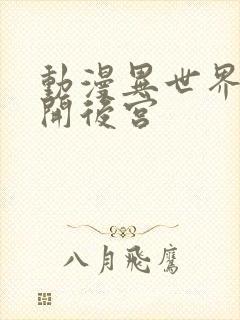 動漫異世界
開後宮
八月飛鷹